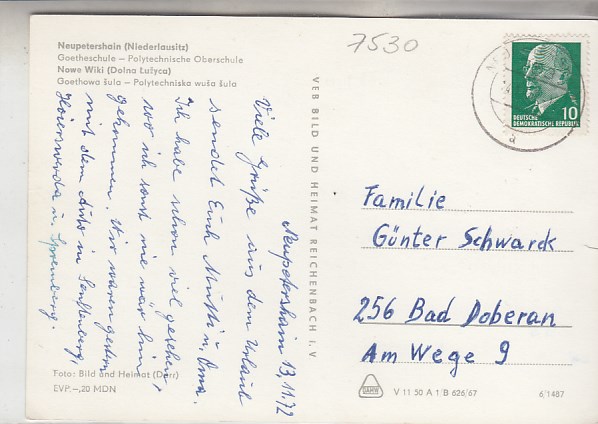 Neupetershain (Niederlausitz)
Goetheschule — Polytechnische Oberschule
Nowe Wiki (Dolna Łužyca)
Goethowa šula — Polytechniska wuša šula
7530
DEUTSCHE
DEMOKRATISCHE REPUBLIK
10
Neupetershain 13.11.72
Viele Grüße aus dem Urlaub
sendet Euch Mutti u. Oma.
Ich habe schon viel gesehen,
wo ich sonst nie wär hin
gekommen. Wir waren gestern
mit dem Auto in Senftenberg,
Hoierswerda u. Spremberg.
VEB BILD UND HEIMAT REICHENBACH I. V
Familie
Günter Schwarck
256 Bad Doberan
Am Wege 9
Foto: Bild und Heimat (Dörr)
EVP: –,20 MDN
V 11 50 A 1/B 626/67
6/1487